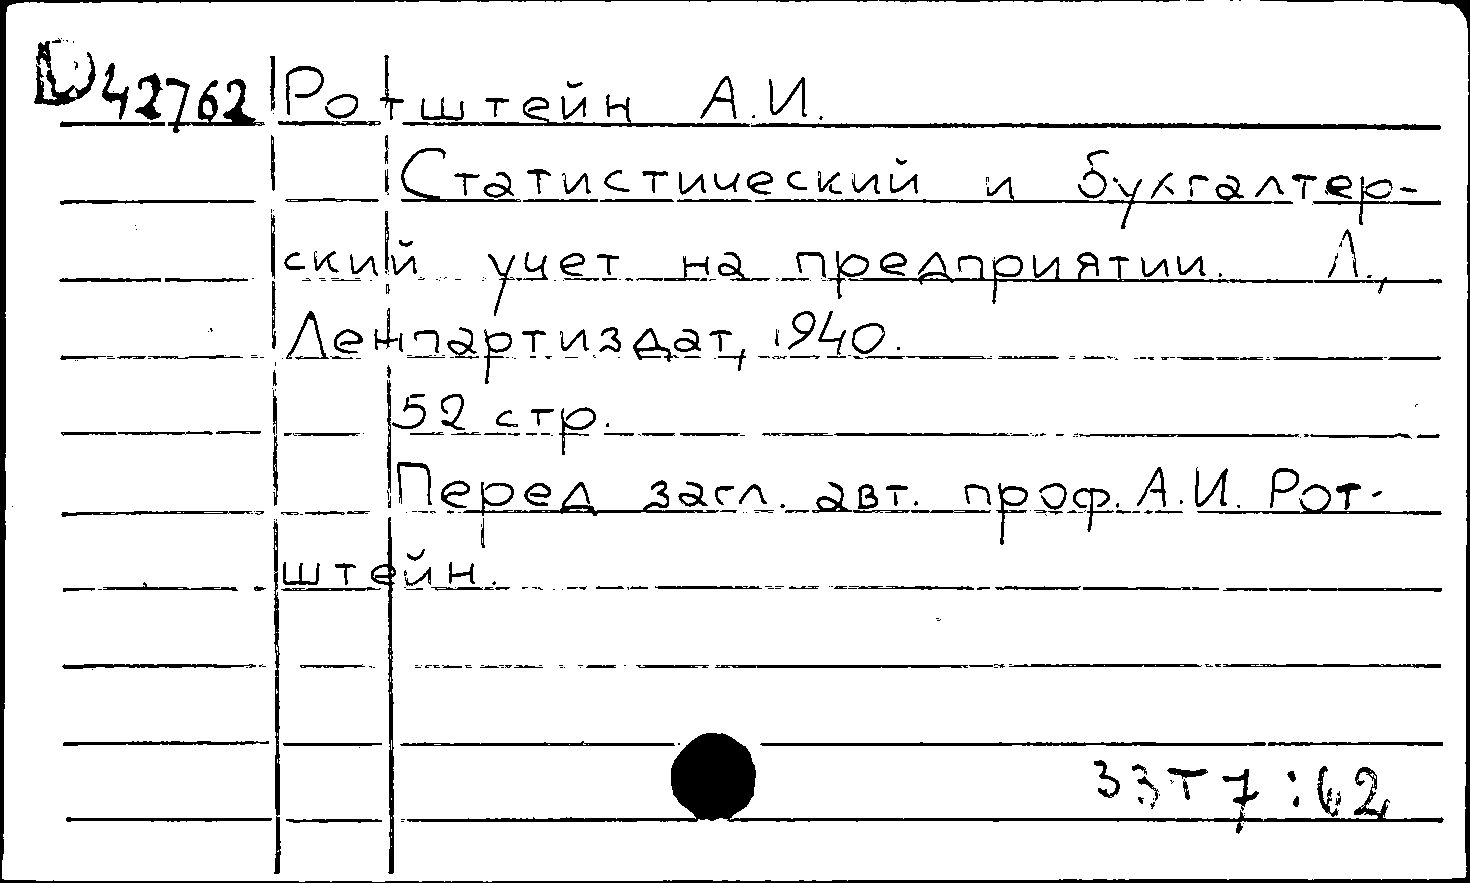 D 42762 Ротштейн А.И.
Статистический и бухгалтер-
ский учет на предприятии. Л.,
Ленпартиздат, 1940.
52 стр.
Перед загл. авт. проф. А.И. Рот-
штейн.
33Т7:62